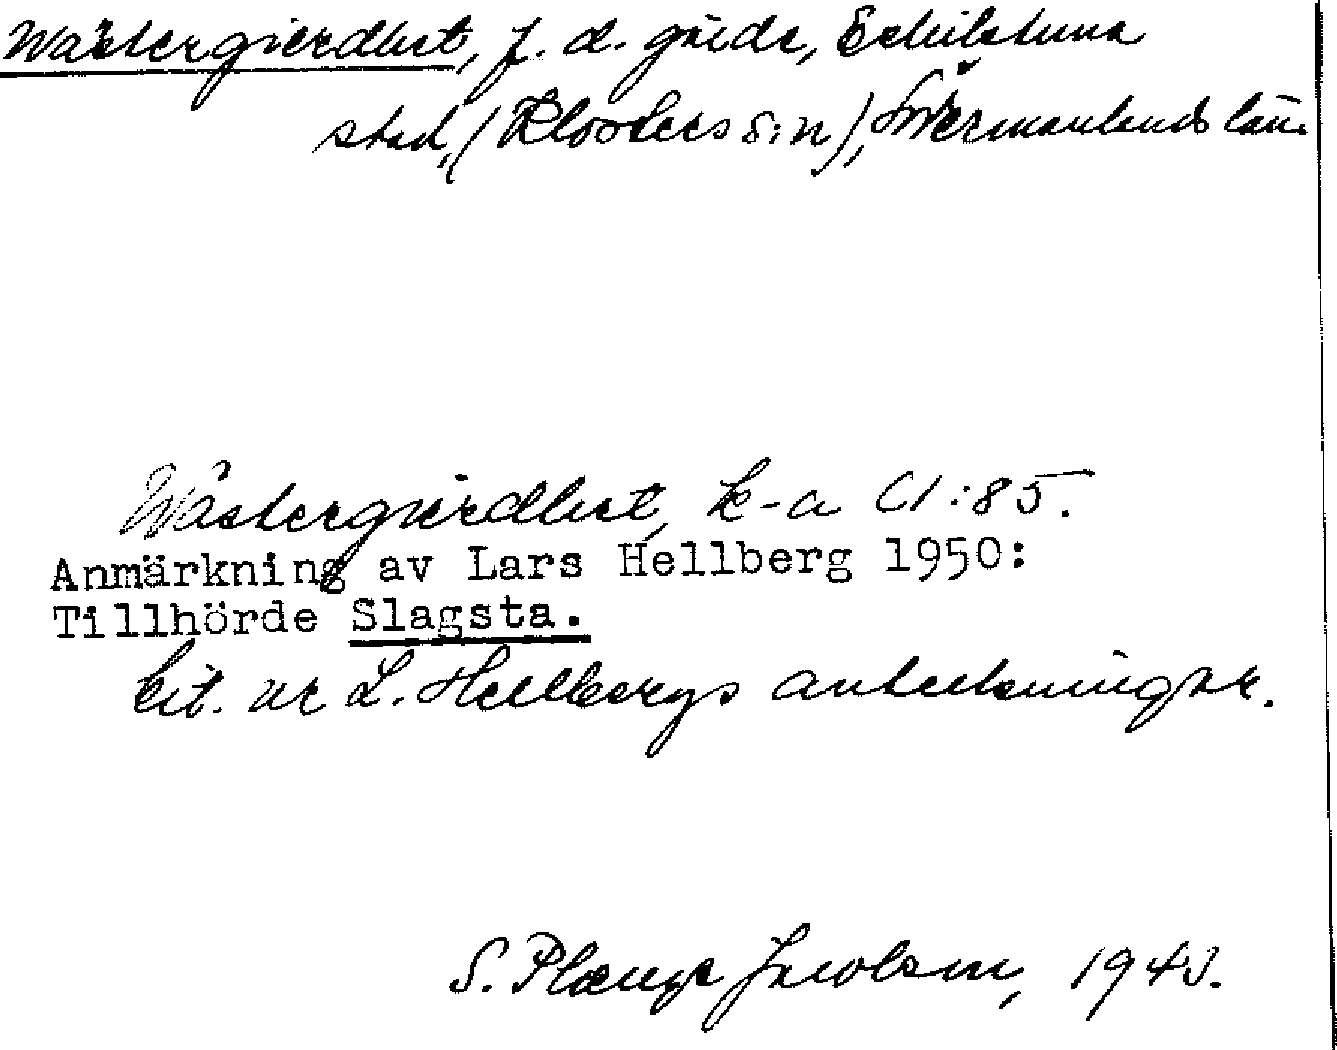 Wästergierdhet, f. d. gärde, Eskilstuna
stad, (Klosters s:n), Södermanlands län.
Wästergierdhet, k-a C1:85.
Anmärkning av Lars Hellberg 1950:
Tillhörde Slagsta.
Cit. ur L. Hellbergs anteckningar.
S. Plænge Jacobson, 1943.